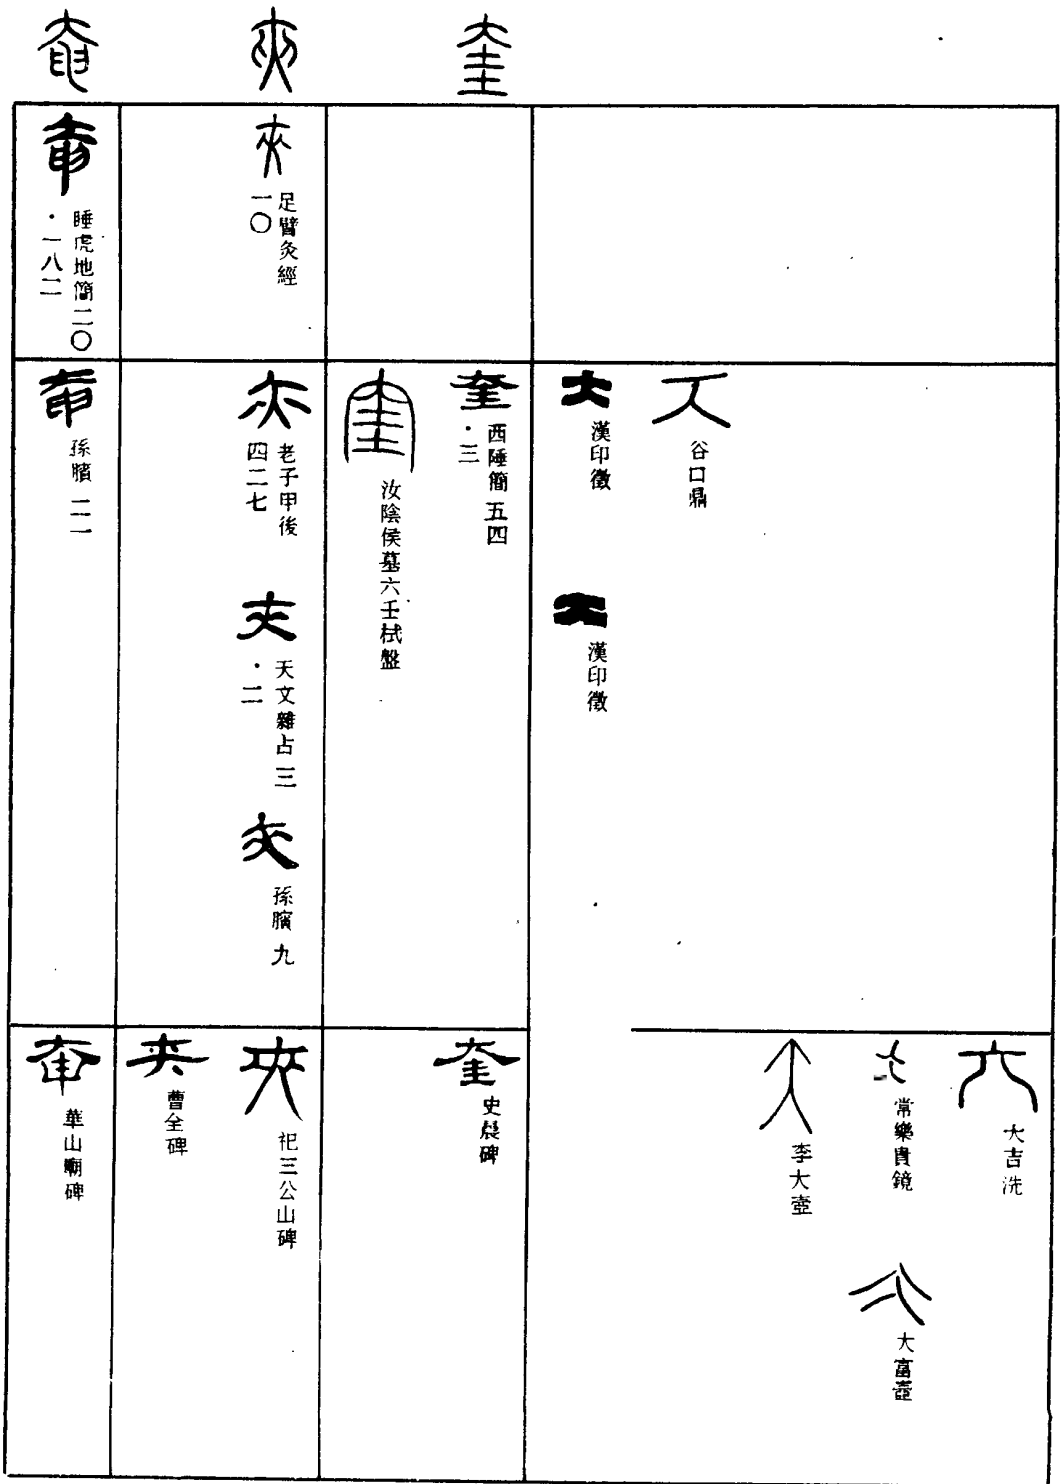 奎
夾
奄
大
谷口鼎
大
漢印徵
大
漢印徵
大
大吉洗
大
常樂貴鏡
大
大富壺
大
李大壺
奎
西陲簡五四
·三
奎
汝陰侯墓六壬栻盤
奎
史晨碑
夾
足臂灸經
一〇
夾
老子甲後
四二七
夾
天文雜占三
·二
夾
孫臏九
夾
祀三公山碑
夾
曹全碑
奄
睡虎地簡二〇
·一八二
奄
孫臏二一
奄
華山廟碑